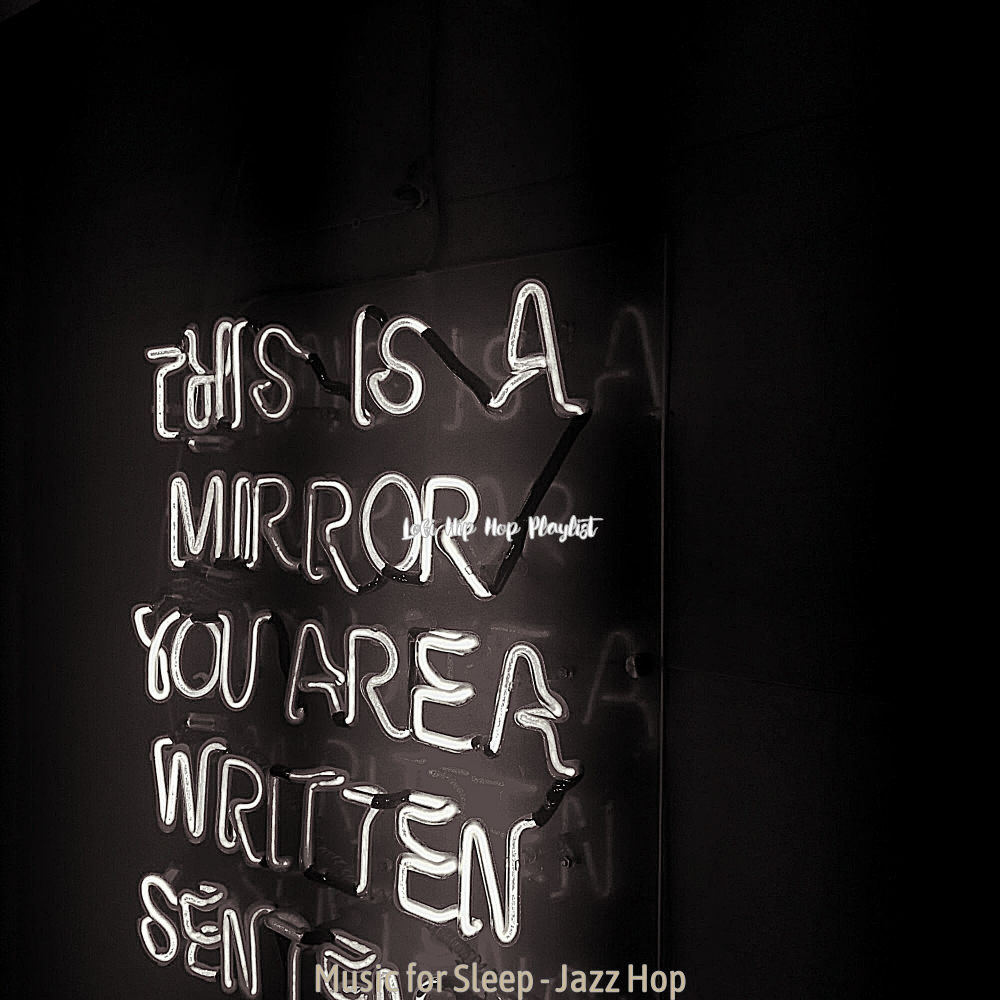 THIS IS A
MIRROR
Lofi Hip Hop Playlist
YOU ARE A
WRITTEN
SENTEN
Music for Sleep - Jazz Hop